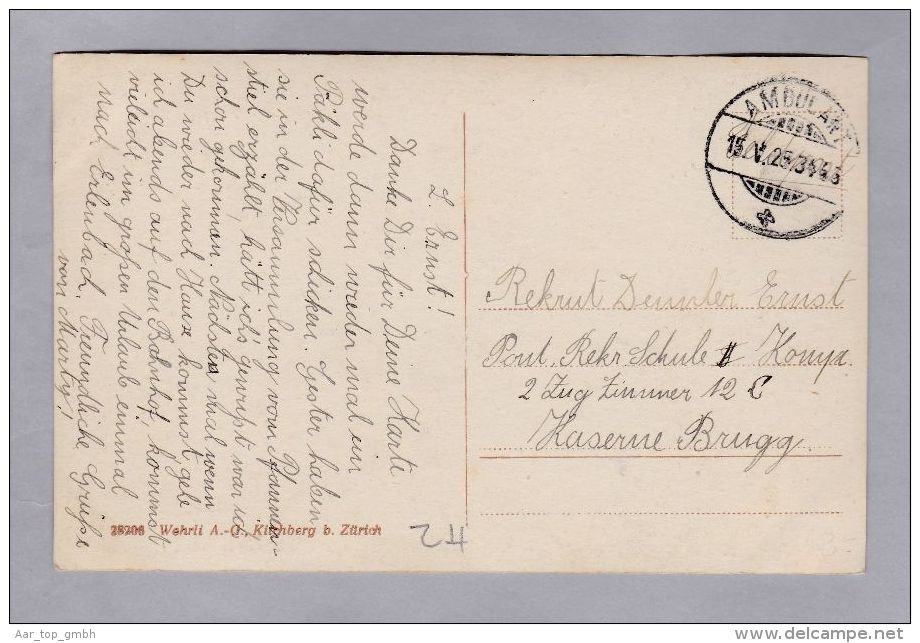 L. Ernst!
Danke Dir für Deine Karte
werde dann wieder mal ein
Päkli dafür schicken. Gester haben
sie in der Versammlung vom Pfannen-
stiel erzählt, hätt ich's gewusst wär ich
schon gekommen. Nächstes mal wenn
Du wieder nach Hause kommst gehe
ich abends auf den Bahnhof, kommst
vieleicht im großen Urlaub einmal
nach Erlenbach. Freundliche Grüße
von Marty.
AMBULANT
15. V. 25
Rekrut Demler Ernst
Pont. Rekr Schule II Komp.
2 Zug Zimmer 12 C
Kaserne Brugg.
Wehrli A.-G., Kilchberg b. Zürich
Aar_top_gmbh
delcampe.net